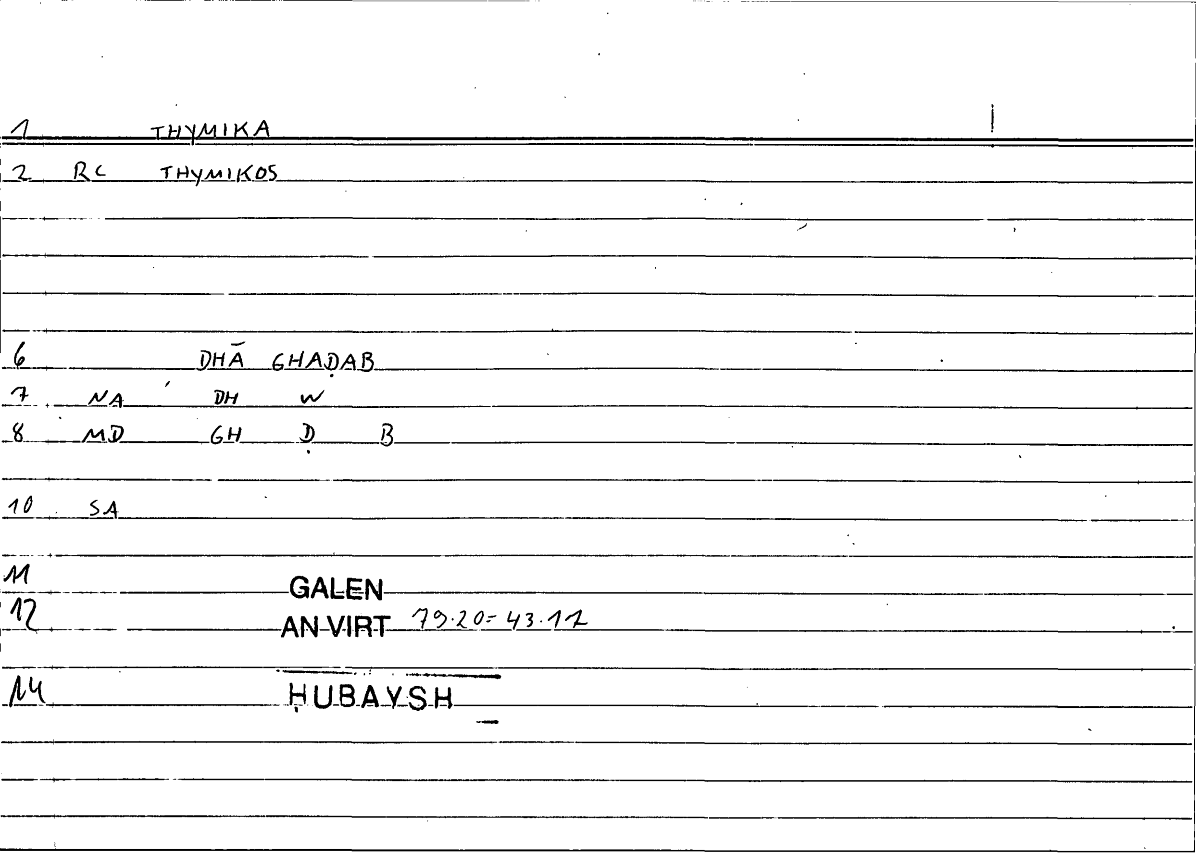 1 THYMIKA
2 RC THYMIKOS
6 DHĀ GHAḌAB
7 NA DH W
8 MD GH Ḍ B
10 SA
11 GALEN
12 AN VIRT 79.20=43.11
14 ḤUBAYSH